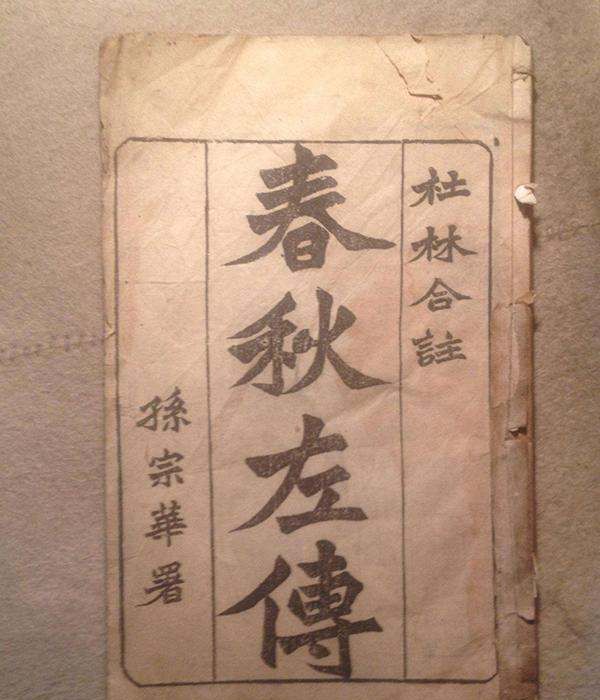 杜林合註
春秋左傳
孫宗華署